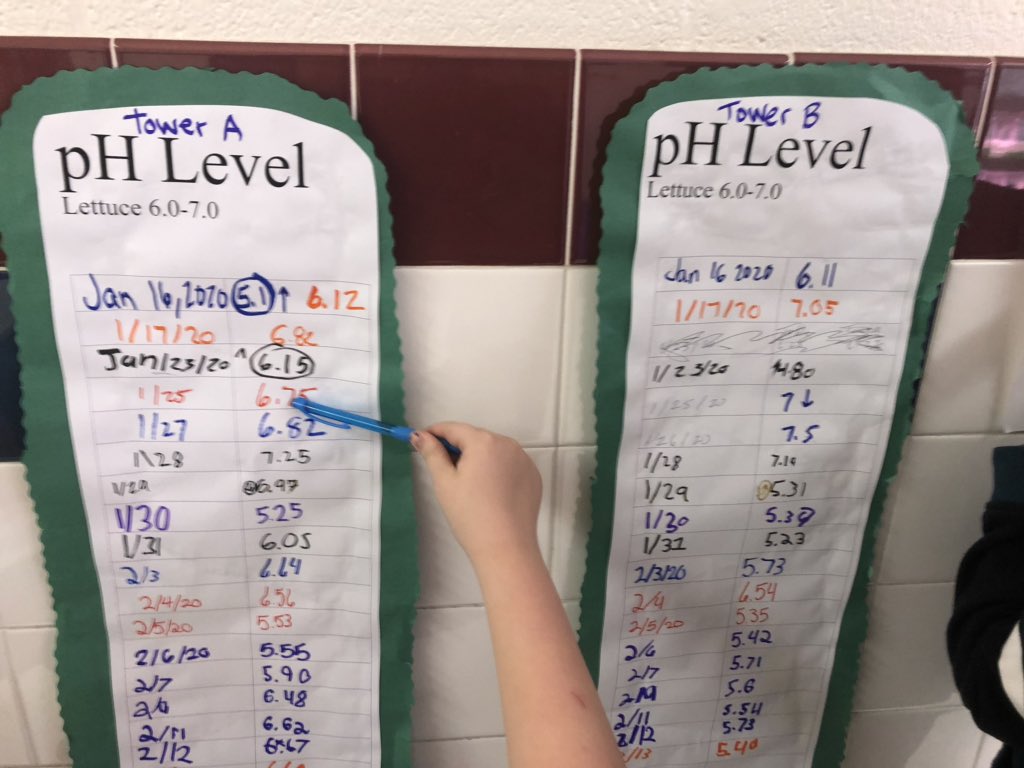 Tower A
pH Level
Lettuce 6.0-7.0
Jan 16, 2020 5.1 ↑ 6.12
1/17/20 6.82
Jan/23/20 ^ 6.15
1/25 6.75
1/27 6.82
1\28 7.25
6.97
1/30 5.25
1/31 6.05
2/3 6.64
2/4/20 6.56
2/5/20 5.53
2/6/20 5.55
2/7 5.90
6.48
2/11 6.62
2/12 6.67
Tower B
pH Level
Lettuce 6.0-7.0
Jan 16 2020 6.11
1/17/20 7.05
1/23/20 4.80
1/25/20 7 ↓
1/26/20 7.5
1/28 7.19
1/29 5.31
1/30 5.30
1/31 5.23
2/3/20 5.73
2/4 6.54
2/5/20 5.35
2/6 5.42
2/7 5.71
5.6
2/11 5.54
2/12 5.73
/13 5.40